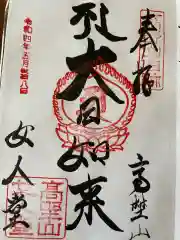 奉拝
高野山
大日如来
令和四年五月廿八日
女人堂
高野山